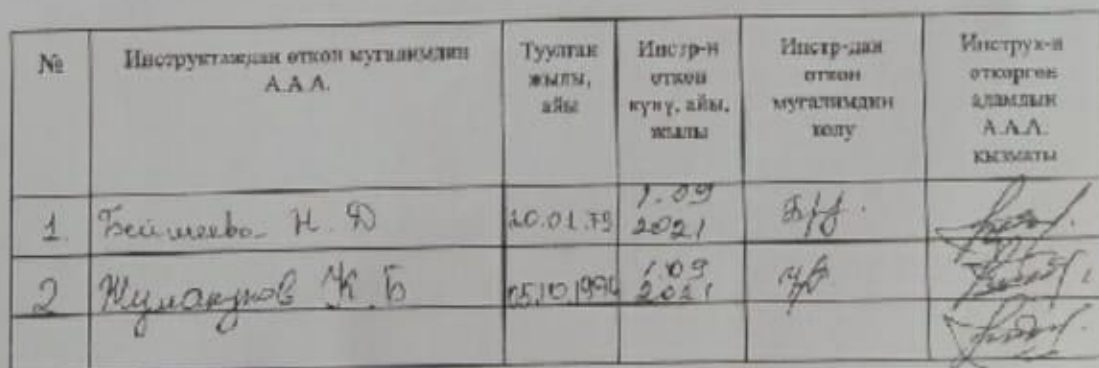 №
Инструктаждан өткөн мугалимдин
А.А.А.
Туулган
жылы,
айы
Инстр-н
өткөн
күнү, айы,
жылы
Инстр-дан
өткөн
мугалимдин
колу
Инструк-н
өткөргөн
адамдын
А.А.А.
кызматы
1. Н. Д 20.01.79 1.09
2021
2 Жулакунов Ж Б 05.10.1994 1.09
2021